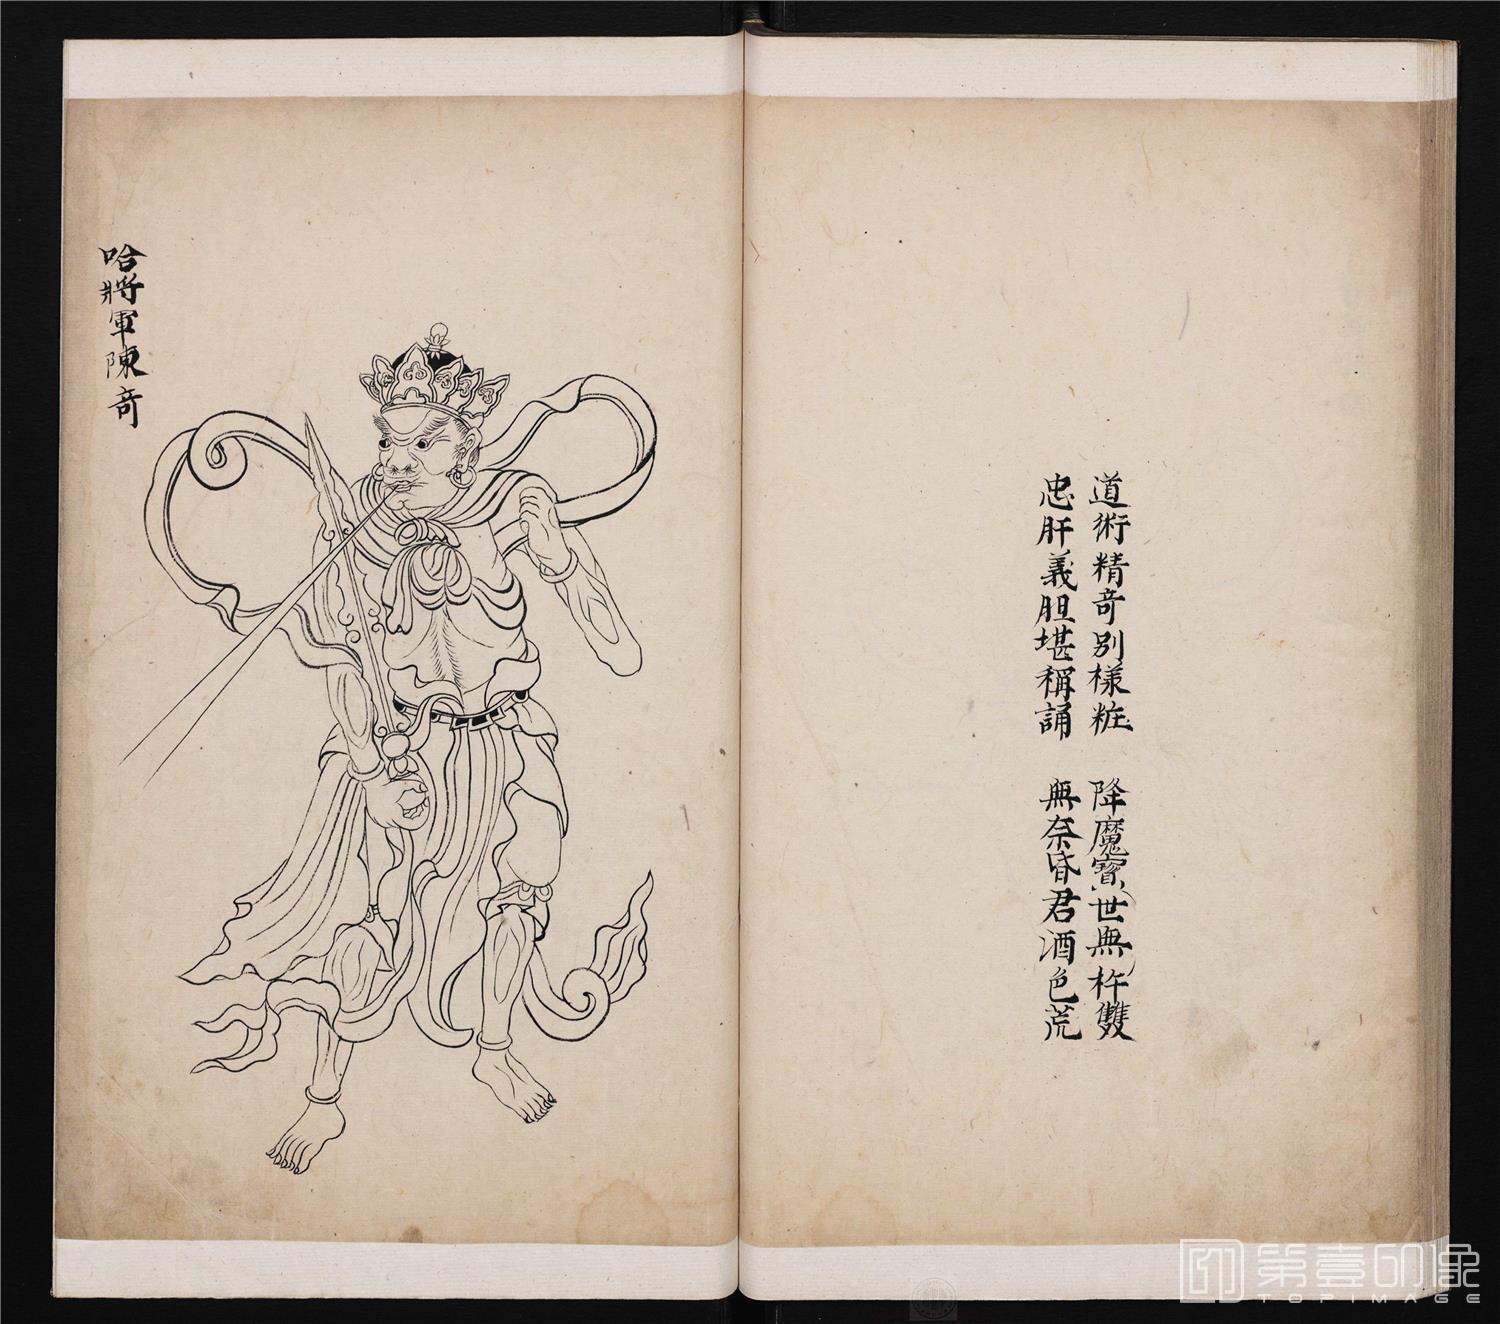 道術精竒别樣粧 降魔寳世無杵雙
忠肝義胆堪稱誦 無奈昏君酒色荒
哈將軍陳竒
第壹印像
TOPIMAGE